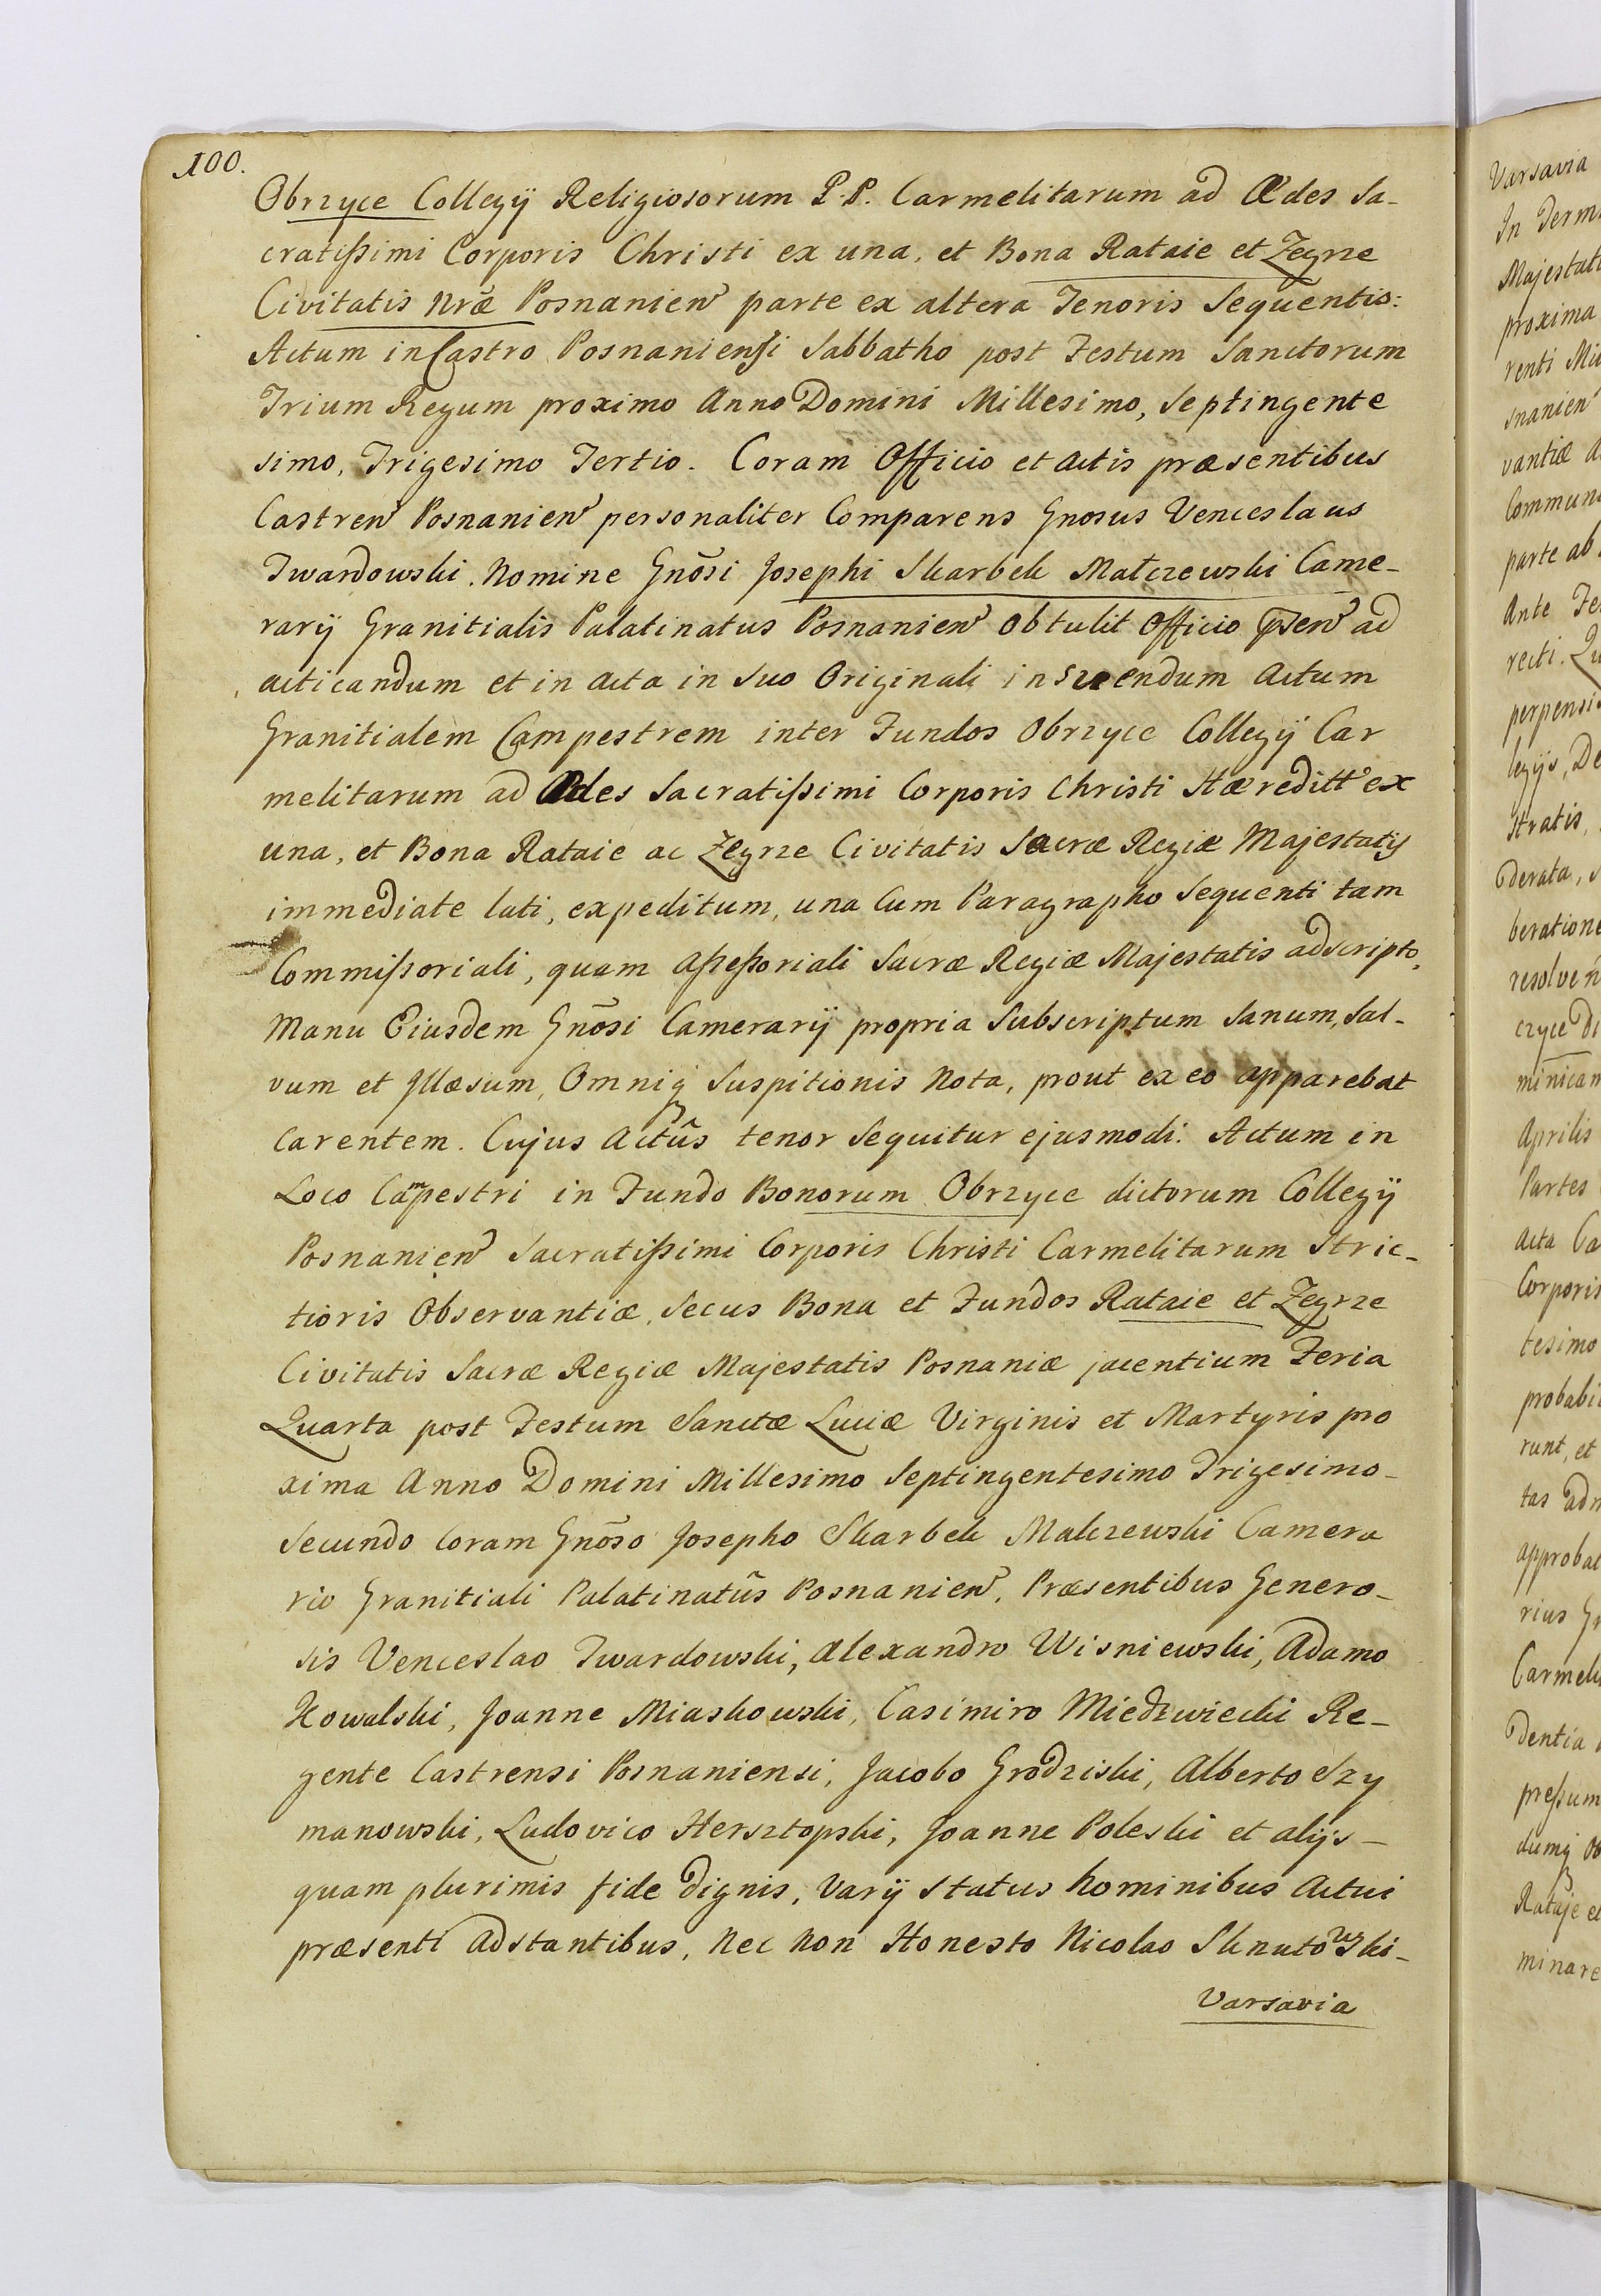 100.
Obrzyce Collegij Religiosorum P.P. Carmelitarum ad Ædes Sa-
cratißimi Corporis Christi ex una, et Bona Rataie et Zegrze
Civitatis nræ Posnanien parte ex altera Tenoris Sequentis:
Actum in Castro Posnaniensi Sabbatho post Festum Sanctorum
Trium Regum proximo Anno Domini Millesimo, Septingente
simo, Trigesimo Tertio. Coram Officio et Actis præsentibus
Castren Posnanien personaliter Comparens Gnosus Venceslaus
Twardowski. Nomine Gnõsi Josephi Skarbek Malczewski Came-
rarij Granitialis Palatinatus Posnanien Obtulit Officio pñsen ad
acticandum et in Acta in suo Originali inserendum Actum
Granitialem Campestrem inter Fundos Obrzyce Collegij Car
melitarum ad Ædes Sacratißimi Corporis Christi Hæreditt ex
una, et Bona Rataie ac Zegrze Civitatis Sacræ Regiæ Majestatis
immediate lati, expeditum, una Cum Paragrapho Sequenti tam
Commißoriali, quam Aßeßoriali Sacræ Regiæ Majestatis adscripto,
Manu Eiusdem Gnõsi Camerarij propria Subscriptum Sanum, Sal-
vum et Jllæsum, Omniq; Suspitionis Nota, prout ex eo apparebat
Carentem. Cujus Actûs tenor Sequitur ejusmodi: Actum in
Loco Campestri in Fundo Bonorum Obrzyce dictorum Collegij
Posnanien Sacratißimi Corporis Christi Carmelitarum Stric-
tioris Observantiæ, Secus Bona et Fundos Rataie et Zegrze
Civitatis Sacræ Regiæ Majestatis Posnaniæ jacentium Feria
Quarta post Festum Sanctæ Luciæ Virginis et Martyris pro
xima Anno Domini Millesimo Septingentesimo Trigesimo-
Secundo Coram Gnõso Josepho Skarbek Malczewski Camera
rio Granitiali Palatinatûs Posnanien, Præsentibus Genero-
sis Venceslao Twardowski, Alexandro Wisniewski, Adamo
Kowalski, Joanne Miaskowski, Casimiro Miedzwiecki Re-
gente Castrensi Posnaniensi, Jacobo Grodziski, Alberto Szy
manowski, Ludovico Hersztopski, Joanne Poleski et alijs-
quam plurimis fide dignis, Varij Status hominibus Actui
præsenti Adstantibus, Nec Non Honesto Nicolao Sknutowski-
Varsavia
Varsavia
In Term
Majestat
proxima
renti
snanien
vantiæ
Commun
parte ab
Ante Fe
recti.
perpensi
legijs, De
stratis,
derata,
beratione
resolven
czyce
minican
Aprilis
Partes
Acta Ca
Corporis
tesimo
probabi
runt, et
tas adn
approbat
rius
Carmeli
dentia
preßum
Rataje
minare